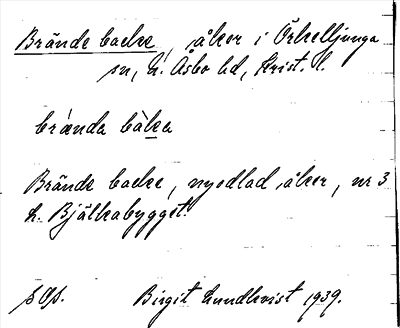 Brände backe, åker i Örkelljunga
sn, N. Åsbo hd, Krist. l.
brǽnda bàka
Brände backe, nyodlad åker, nr 3
N. Bjälkabygget.
Birgit Lundkvist 1939.